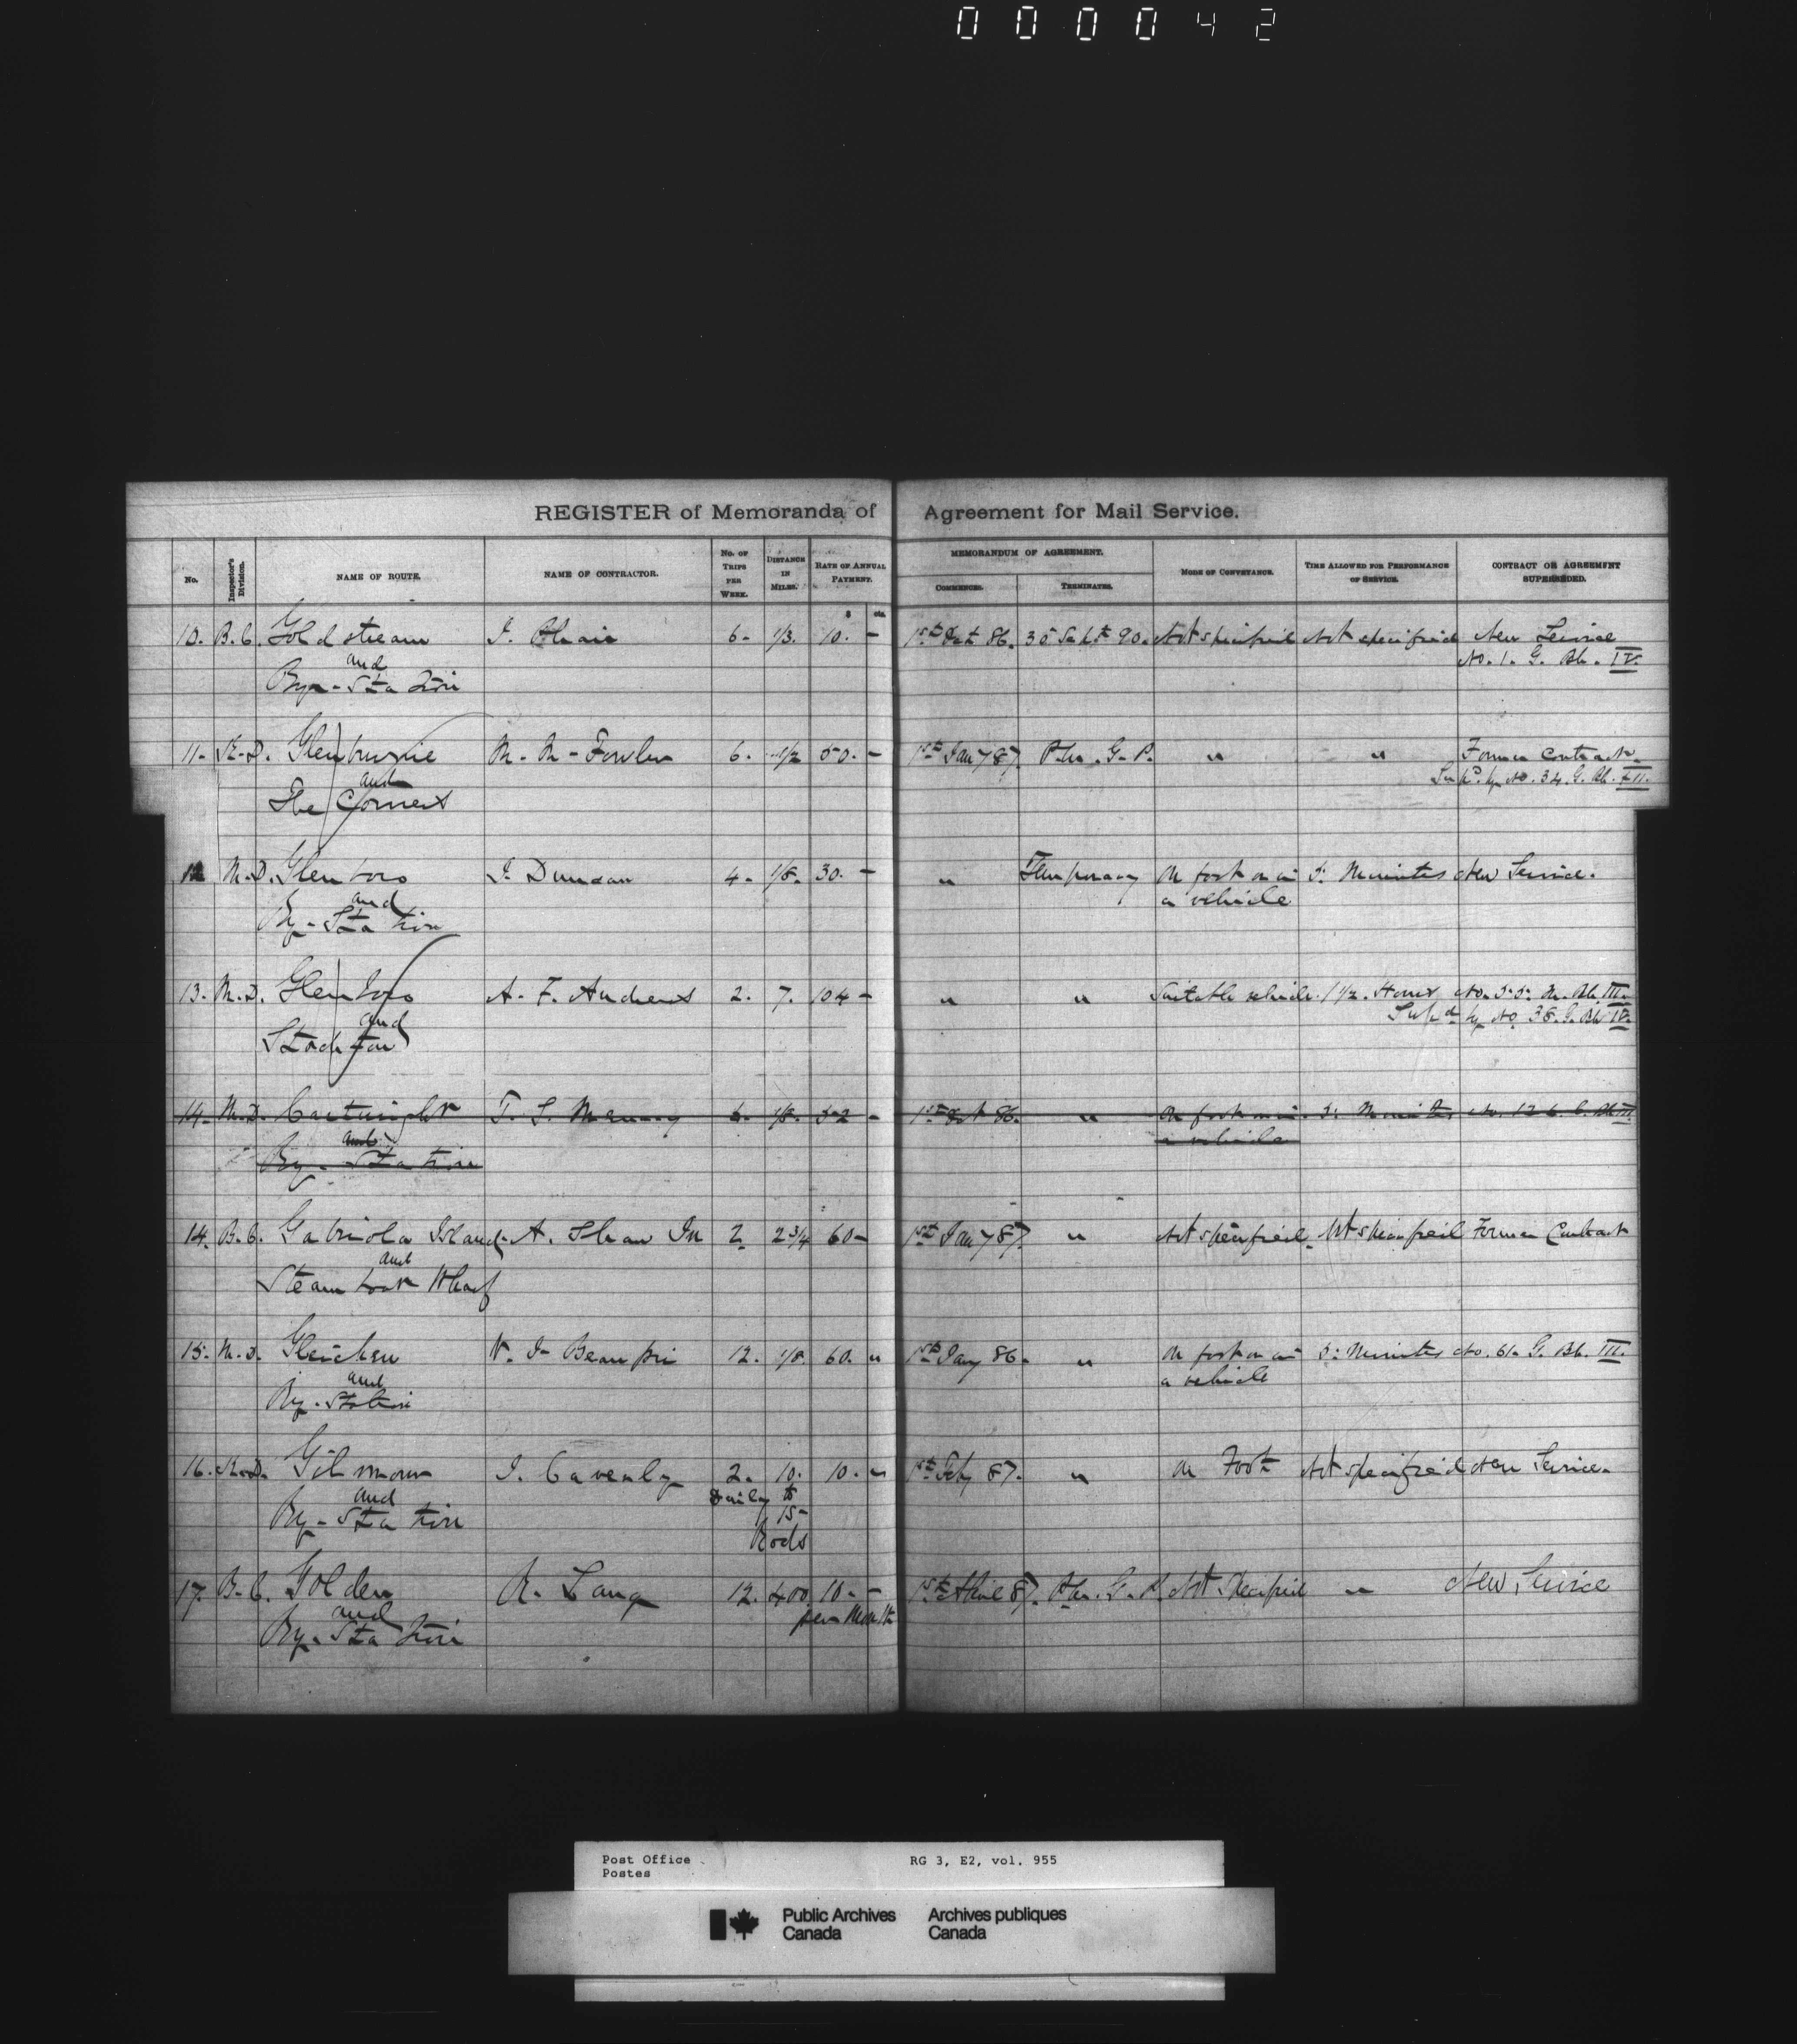 000042
REGISTER of Memoranda of Agreement for Mail Service.
No. Inspector's Division. NAME OF ROUTE. NAME OF CONTRACTOR. No. of Trips per Week. Distance in Miles. Rate of Annual Payment. MEMORANDUM OF AGREEMENT. Commences. Terminates. Mode of Conveyance. Time Allowed for Performance of Service. CONTRACT OR AGREEMENT SUPERSEDED.
$ cts.
10. B.C. Goldstream J. Phair 6- 1/3. 10. - 1st Oct 86. 30 Sept. 90. Not specified Not specified New Service
and No. 1. G. Bk. IV.
Ry - Station
11- K-D. Glenburnie M. M - Fowler 6. 1/2 50. - 1st Jany 87. P.M.G.P. " " Former Contract
and Sup'd. by No. 34. G. Bk.
The Corners
12 M.D. Glenboro J. Duncan 4- 1/8. 30. - " Temporary On foot or in 5. Minutes New Service.
and a vehicle
Ry - Station
13. M.D. Glenboro A. F. Andrews 2. 7. 104 - " " Suitable vehicle. 1 1/2. Hours No. 55 M. Bk. III.
and Sup'd by No 38. G. Bk IV.
Stockton
14. M.D. Cartwright T. S. Menary 6. 1/8. 52 - 1st Oct 86. " On foot or in 5: Minutes No. 126. C. Bk III
and a vehicle
Ry - Station
14. B.C. Gabriola Island A. Shaw Jr 2 2 3/4 60 - 1st Jany 87. " Not specified. Not specified Former Contract
and
Steamboat Wharf
15. M.D. Gleichen V. J. Beaupri 12. 1/8. 60. " 1st Jany 86. " On foot or in 5: Minutes No. 61. G. Bk. III.
and a vehicle
Ry. Station
16. Gilmour J. Caverly 2. 10. 10. " 1st Feby 87. " On Foot Not specified New Service.
and Daily to
Ry - Station 15-
Rods
17. B.C. Golden R. Lang 12. 400 10. - 1st April 87. P.M.G.P. Not Specified " New Service
and per Month
Ry. Station
Post Office RG 3, E2, vol. 955
Postes
Public Archives Archives publiques
Canada Canada